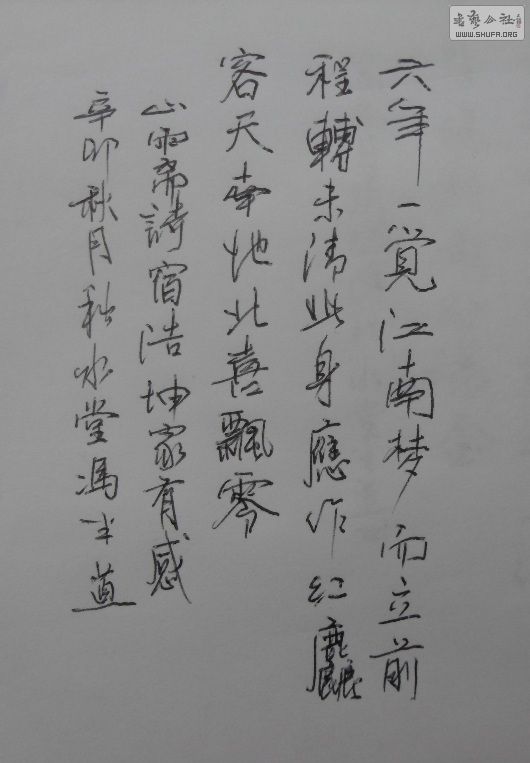 六年一觉江南梦而立前
程转未清此身應作红尘
客天南地北喜飄零
山雨斋诗宿浩坤家有感
辛卯秋月秋水堂冯半道
书艺公社
WWW.SHUFA.ORG